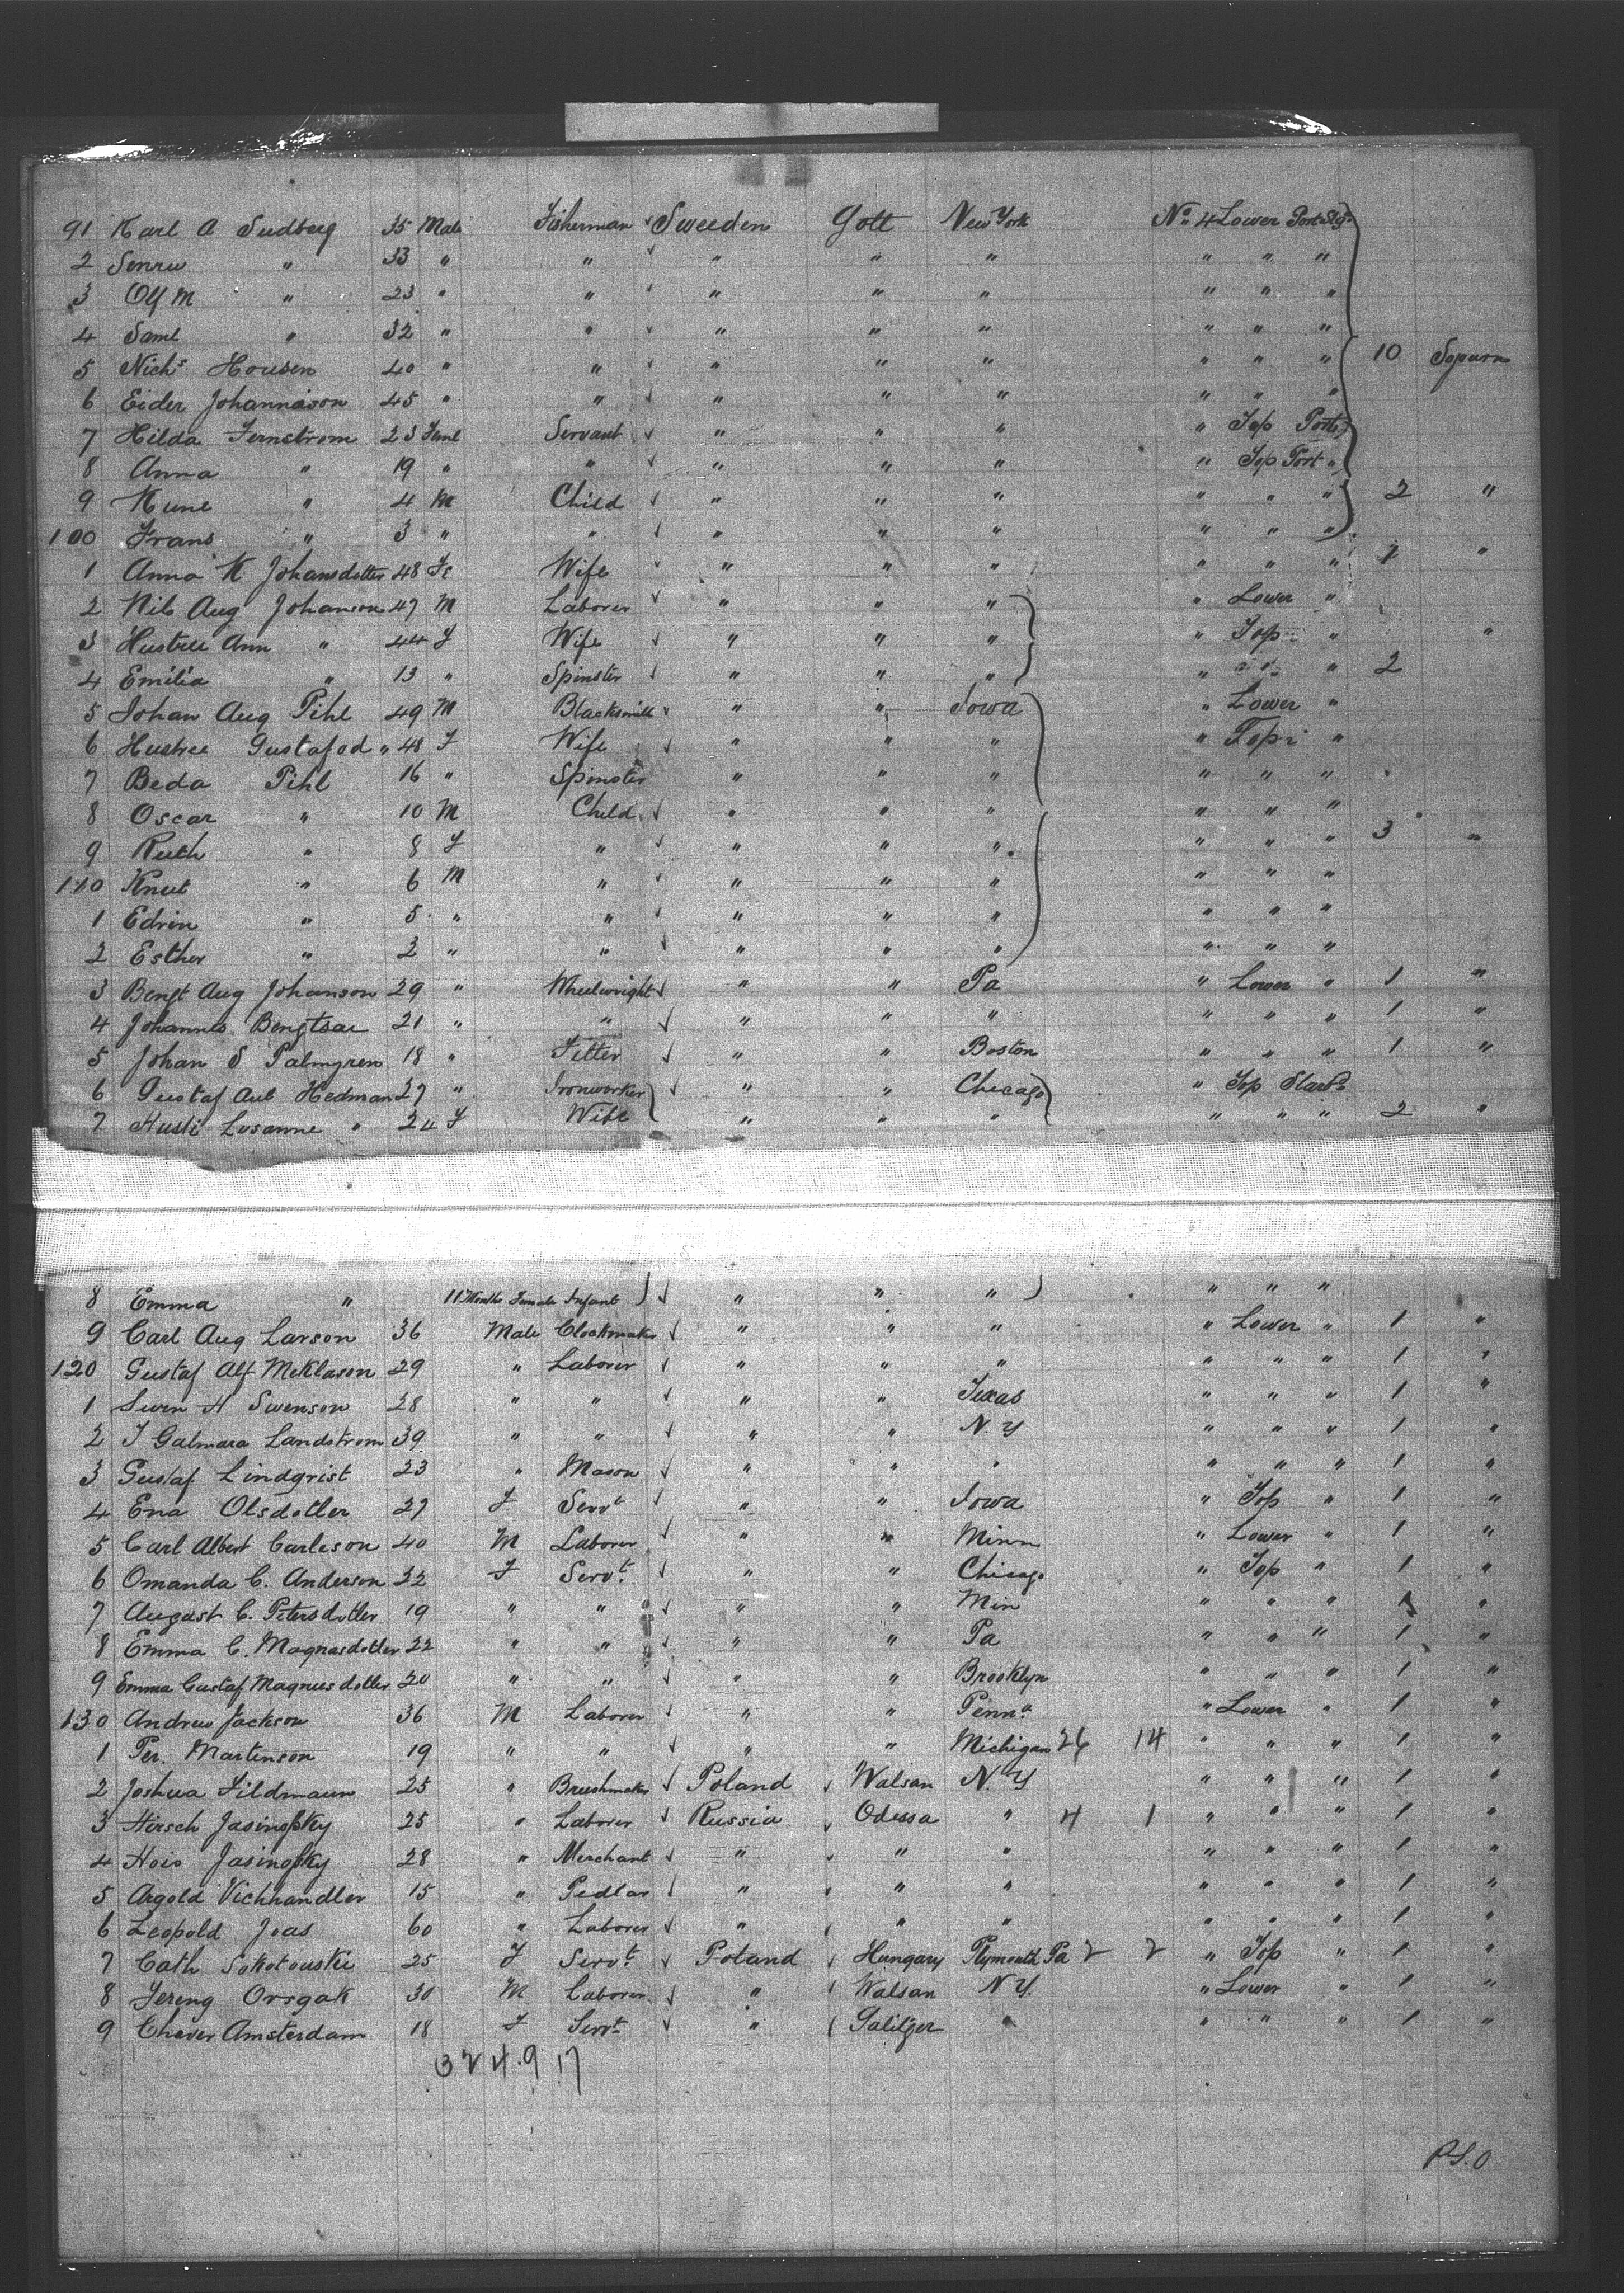 91 Karl A Sudberg 35 Male Fisherman Sweeden Gott New York No 4 Lower Port Stg
2 " 33 " " " " " " " "
3 Olf M " 23 " " " " " " " "
4 Saml " 32 " " " " " " " "
5 Nichs Housen 40 " " " " " " " " 10 Sojourn
6 Eider Johannason 45 " " " " " " " "
7 Hilda Fernstrom 23 Feml Servant " " " " Top Port
8 Anna " 19 " " " " " " Top Port "
9 Kune " 4 M Child " " " " " " 2 "
100 Frans " 3 " " " " " " " "
1 Anna K Johansdotter 48 Fe Wife " " " " " " 1 "
2 Nils Aug Johanson 47 M Laborer " " " " Lower "
3 Hustru Ann " 44 F Wife " " " " Top " "
4 Emilia " 13 " Spinster " " " " " 2
5 Johan Aug Pihl 49 M Blacksmith " " Iowa " Lower "
6 Hustree Gustafod " 48 F Wife " " " " Top "
7 Beda Pihl 16 " Spinster " " " " " "
8 Oscar " 10 M Child " " " " " "
9 Ruth " 8 F " " " " " " " 3 "
110 Knut " 6 M " " " " " " "
1 Edvin " 5 " " " " " " " "
2 Esther " 2 " " " " " " " "
3 Bengt Aug Johanson 29 " Wheelwright " " Pa " Lower " 1 "
4 Johannes Bengtsae 21 " " " " " " " " 1 "
5 Johan S Palmgren 18 " Fitter " " Boston " " " 1 "
6 Gustaf Aub Hedman 27 " Ironworker " " Chicago " Top Starb
7 Husti Lusanne " 24 F Wife " " " " " " 2 "
8 Emma " 11 Months Female Infant " " " " " "
9 Carl Aug Larson 36 Male Clockmaker " " " " Lower " 1 "
120 Gustaf Alf McKlason 29 " Laborer " " " " " " 1 "
1 Swen H Swenson 28 " " " " Texas " " " 1 "
2 J Galmara Landstrom 39 " " " " N. Y " " " 1 "
3 Gustaf Lindgrist 23 " Mason " " " " " " 1 "
4 Ena Olsdotter 27 F Servt " " Iowa " Top " 1 "
5 Carl Albert Carleson 40 M Laborer " " Minn " Lower " 1 "
6 Omanda C. Anderson 22 F Servt. " " Chicago " Top " 1 "
7 August C. Petersdotter 19 " " " " Min " " " 1 "
8 Emma C. Magnasdotter 22 " " " " Pa " " " 1 "
9 Emma Gustaf Magnusdotter 20 " " " " Brooklyn " " " 1 "
130 Andrew Jackson 36 M Laborer " " Penna. " Lower " 1 "
1 Per. Martenson 19 " " " " Michigan 26 14 " " " 1 "
2 Joshua Fildmann 25 " Brushmaker Poland Walsan N. Y " " " 1 "
3 Hirsch Jasinofsky 25 " Laborer Russia Odessa " 4 1 " " " 1 "
4 Hois Jasinofsky 28 " Merchant " " " " " " 1 "
5 Argold Vichhandler 15 " Pedlar " " " " " " 1 "
6 Leopold Joas 60 " Laborer " " " " " " 1 "
7 Cath Sokotouski 25 F Servt. Poland Hungary Plymouth Pa 2 2 " Top " 1 "
8 Jereng Orsgak 30 M Laborer " Walsan N Y. " Lower " 1 "
9 Chever Amsterdam 18 F Servt " Galitzer " " " " 1 "
3 2 4. 9 17